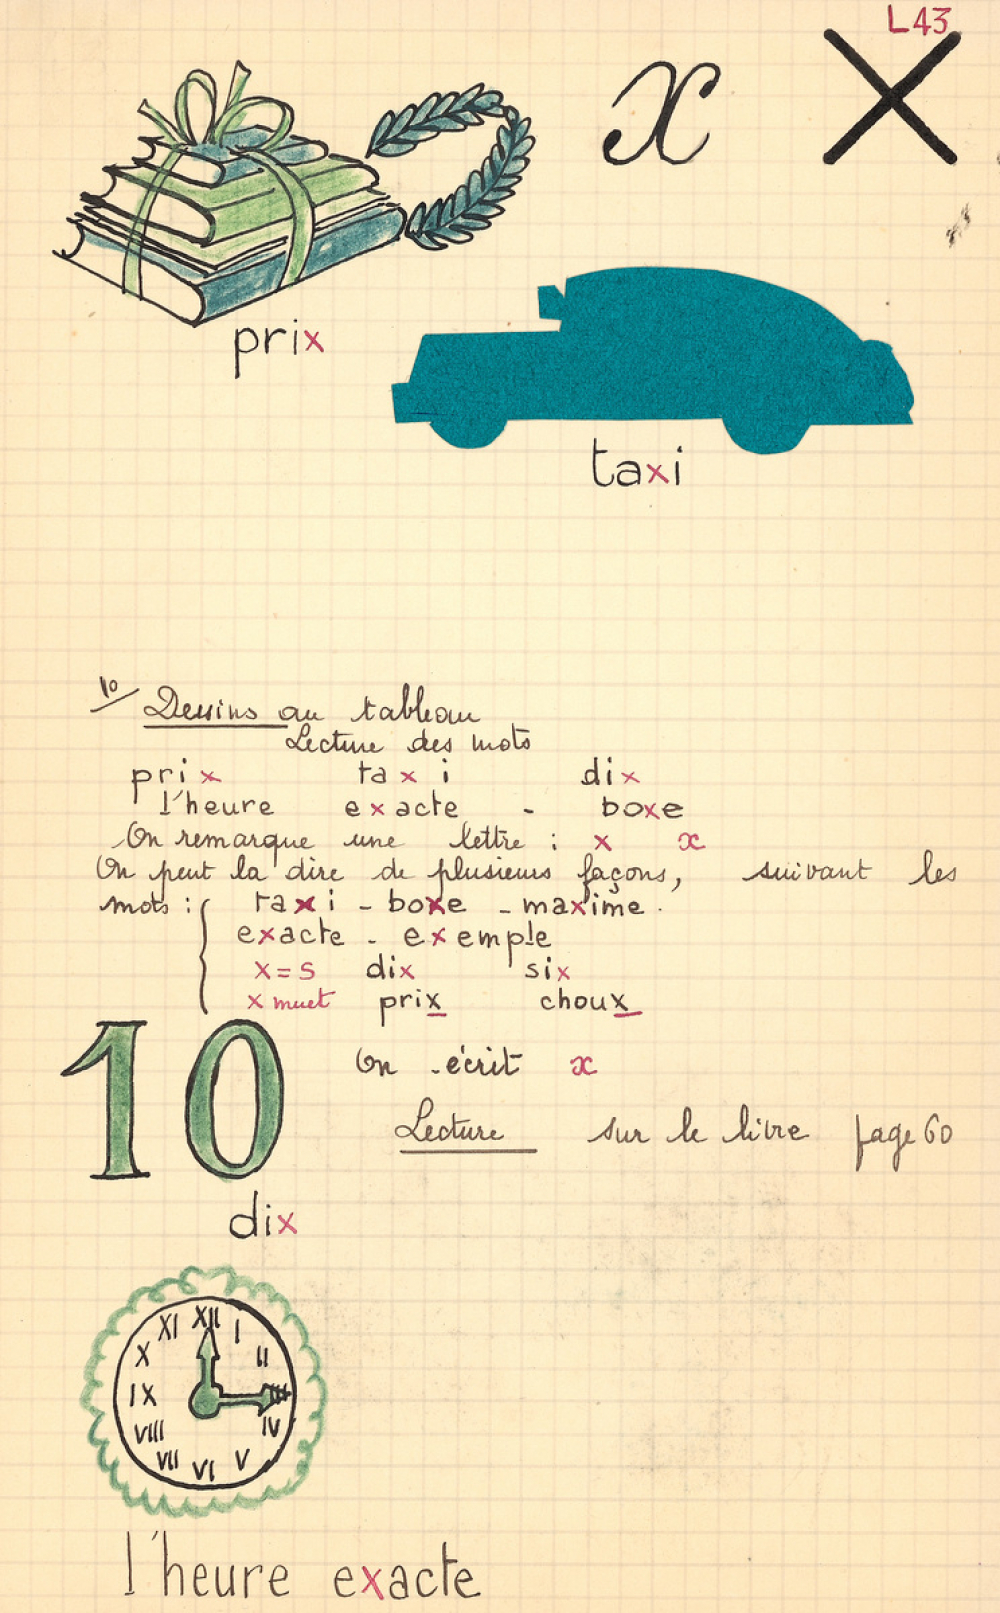 L43
x X
prix
taxi
1º/ Dessins au tableau
Lecture des mots
prix taxi dix
l'heure exacte - boxe
On remarque une lettre : x x
On peut la dire de plusieurs façons, suivant les
mots : { taxi - boxe - maxime.
exacte - exemple
x = s dix six
x muet prix choux
10
On écrit x
Lecture sur le livre page 60
dix
XII I II III IV V VI VII VIII IX X XI
l'heure exacte